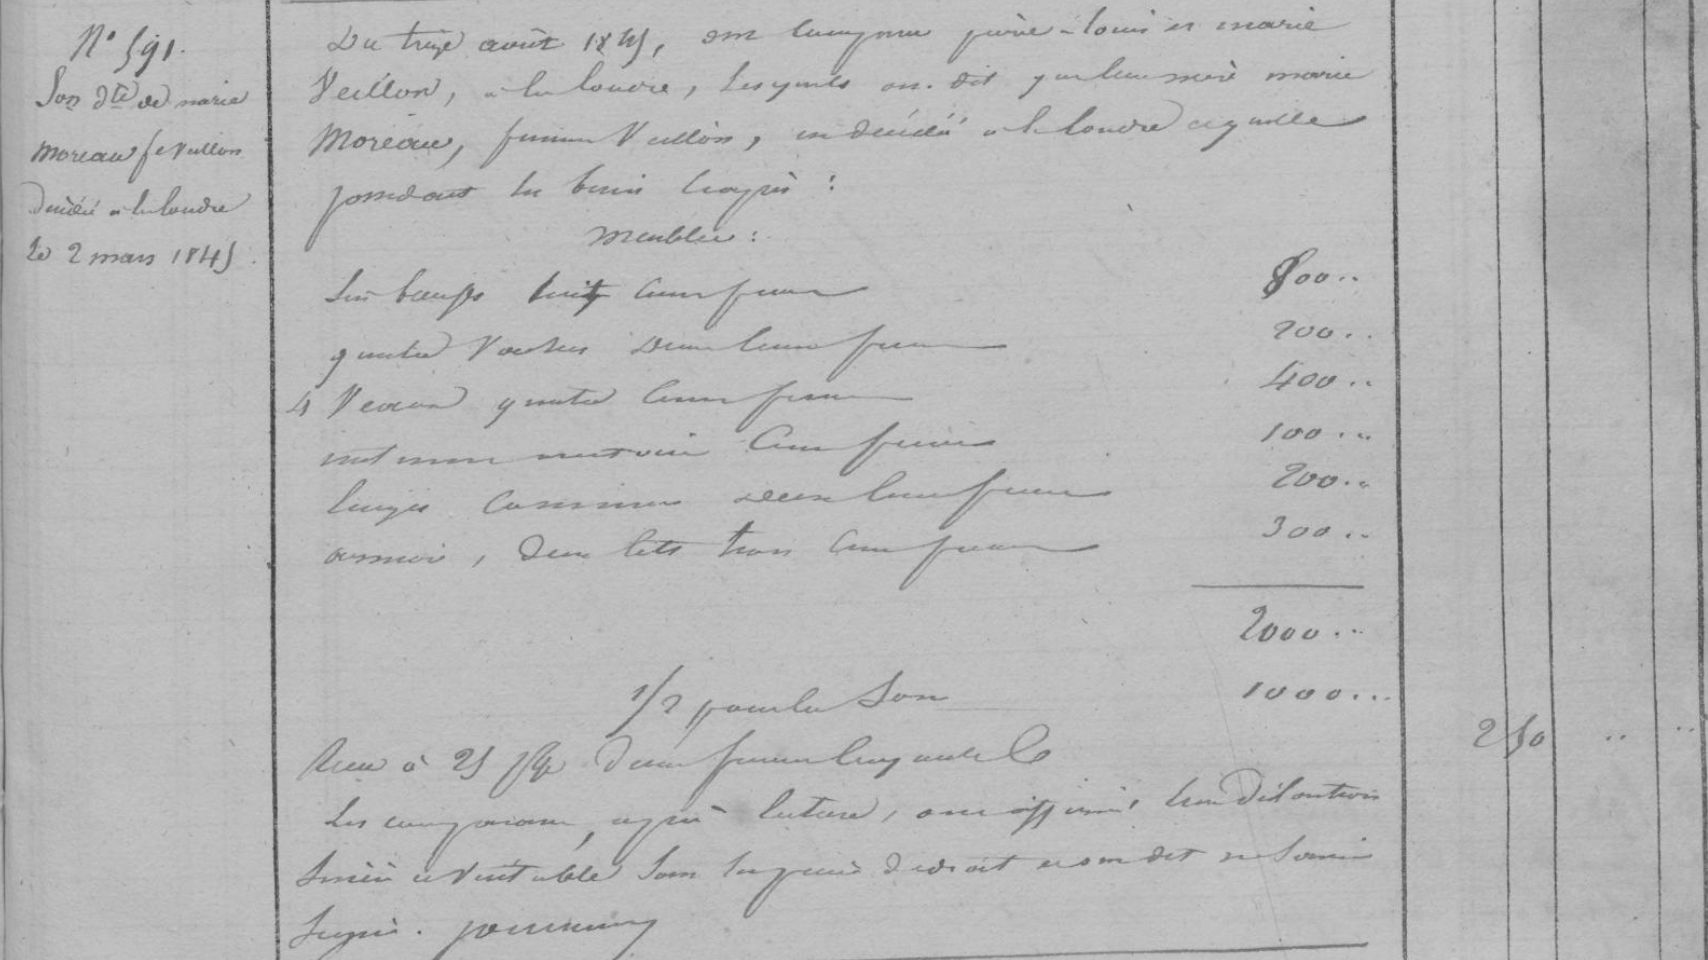 N° 591.
Son dte de marie
moreau fe Veillon
décédé a la Coudre
Le 2 mars 1845.
Du treize août 1845, ont comparu pierre-Louis et marie
Veillon, a la Coudre, Lesquels ont dit que leur mère marie
Moreau, femme Veillon, est décédée a la Coudre et qu'elle
possedait les biens ci après :
Meubles :
Six bœufs huit Cent francs 800..
quatre Vaches deux Cent francs 200..
4 Veaux quatre Cent francs 400..
Cent francs 100...
linges Communs deux Cent francs 200..
armoire, deux lits trois Cent francs 300..
2000..
1/2 pour la Son 1000...
Reçu à 25 deux francs Cinquante C 2 50 .. ..
Les comparants, après lecture, ont affirmé leur Déclaration
Sincère et Véritable Sous les peines de droit et ont dit ne Savoir
Signer.